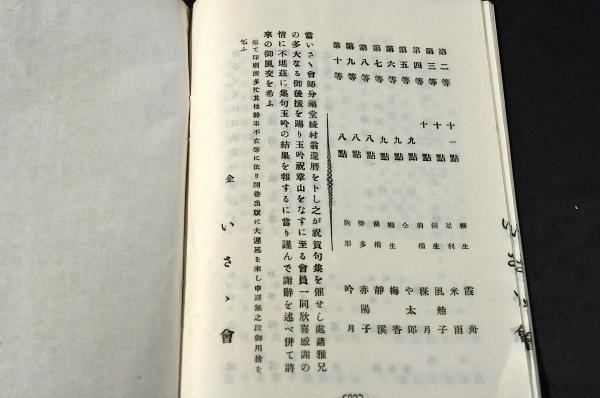 第二等 十一點 桐生 霞舟
第三等 十點 足利 米雨
第四等 十點 桐生 風船子
第五等 九點 前橋 楳月
第六等 九點 仝 や太郎
第七等 九點 桐生 梅香
第八等 八點 前橋 靜溪
第九等 八點 勢多 赤陽子
第十等 八點 駒形 吟月
當いさゝ會師分福堂綾村翁還曆をトし之が祝賀句集を催せし處諸雅兄
の多大なる御後援を賜り玉吟祝章山をなすに至る會員一同欣喜感謝の
情に不堪茲に集句玉吟の結果を報ずるに當り謹んで謝辭を述べ併て將
來の御風交を希ふ
追て印刷所多忙其他幹事不在等に依り開卷出版に大遲延を來し申譯無之段御用捨を
乞ふ
いさゝ會